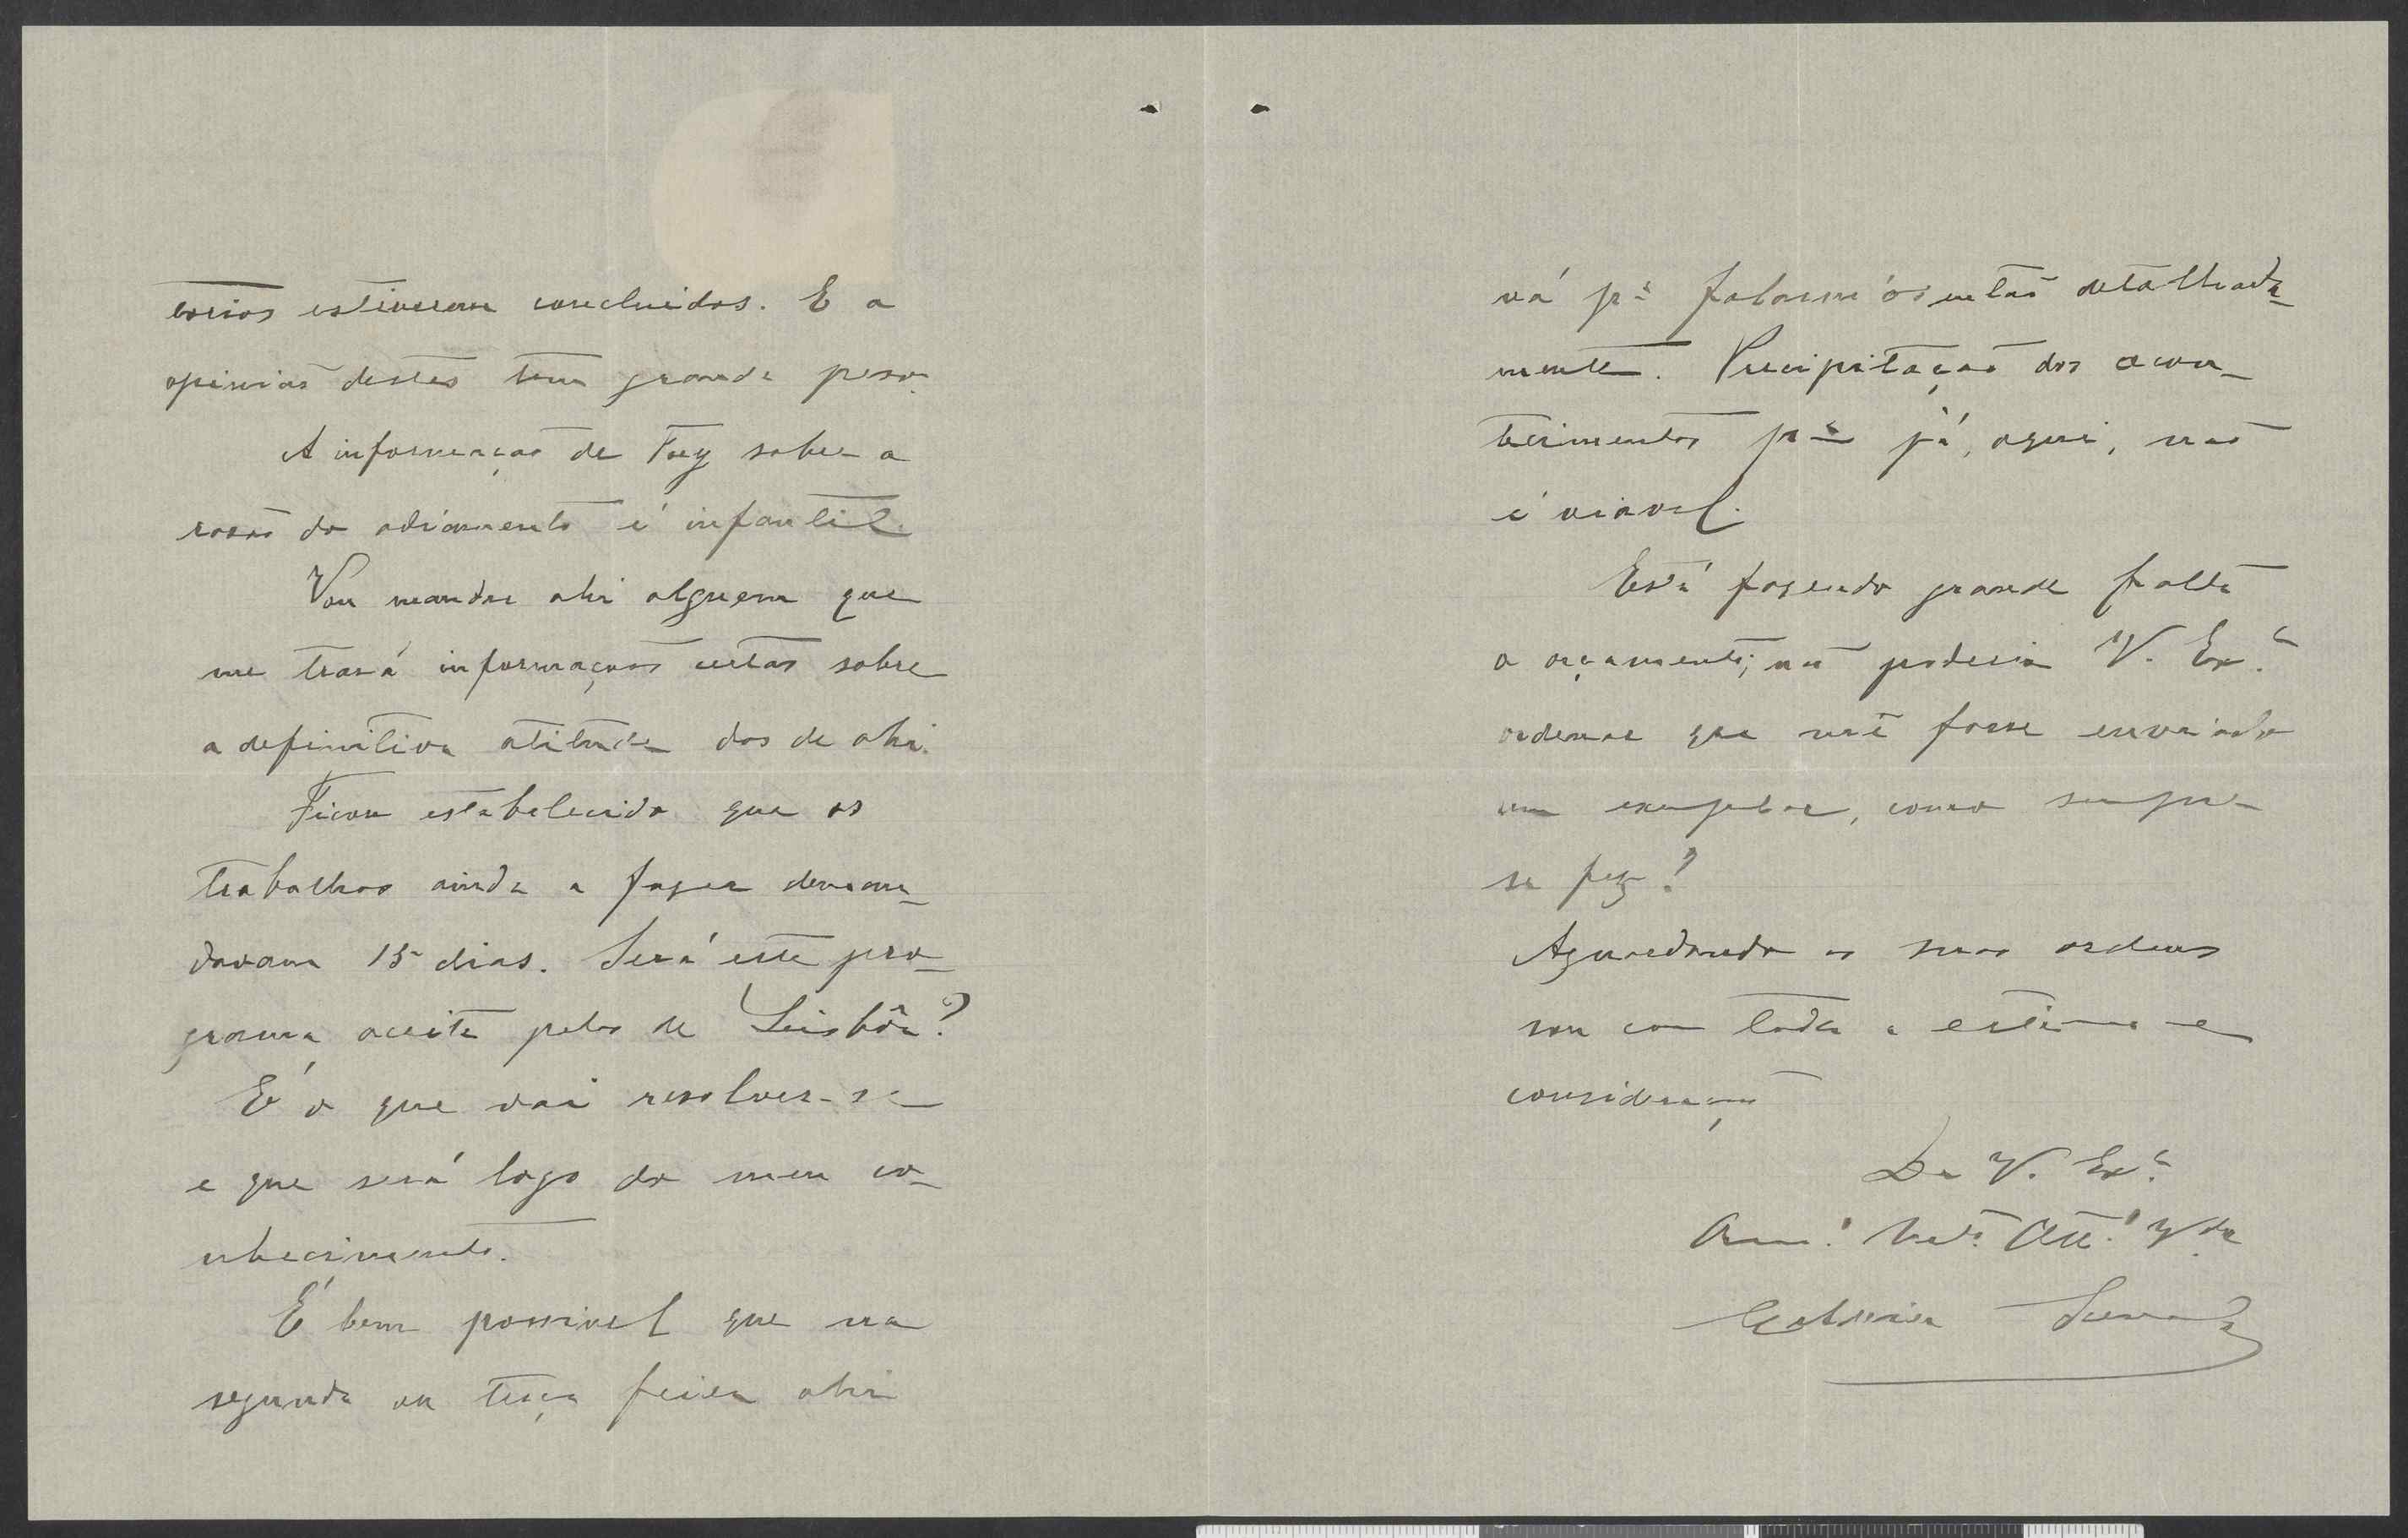 torios estiverem concluidos. E a
opinião destes tem grande peso.
A informação de Foy sobre a
rasão do adiamento é infantil.
Vou mandar ahi alguem que
me trará informações certas sobre
a definitiva atitude dos de ahi.
Ficou estabelecido que os
trabalhos ainda a fazer deman-
davam 15 dias. Será este pro-
grama aceite pelos de Lisbôa?
É o que vai resolver-se
e que será logo do meu co-
nhecimento.
É bem possivel que na
segunda ou terça feira ahi
vá pª falarmos então detalhada-
mente. Precipitação dos acon-
tecimentos pª já, aqui, não
é viavel.
Está fazendo grande falta
o orçamento; não poderia V. Exª
ordenar que me fosse enviado
um exemplar, como sempre
se fez?
Aguardando as suas ordens
sou com toda a estima e
consideração
De V. Exª